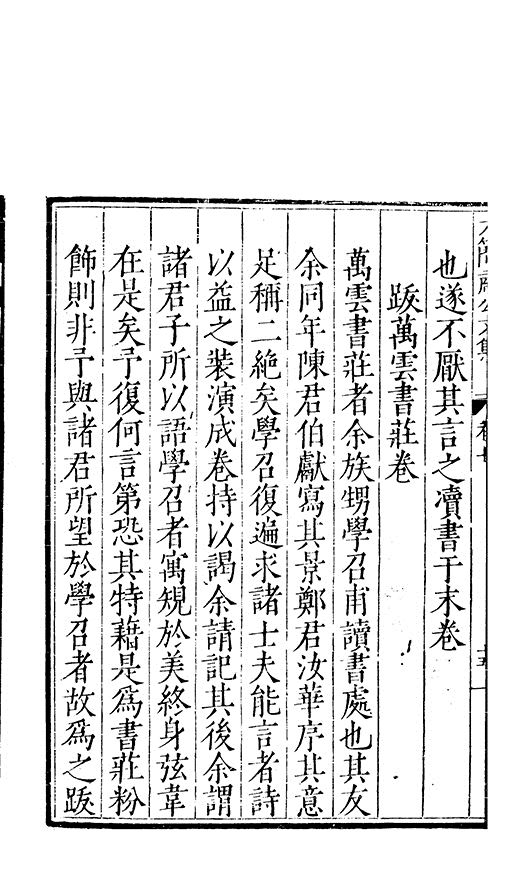 也遂不厭其言之瀆書于末卷
跋萬雲書莊卷
萬雲書莊者余族甥學召甫讀書處也其友
余同年陳君伯獻寫其景鄭君汝華序其意
足稱二絶矣學召復遍求諸士夫能言者詩
以益之裝演成卷持以謁余請記其後余謂
諸君子所以語學召者寓規於美終身弦韋
在是矣予復何言第恐其特藉是爲書莊粉
飾則非予與諸君所望於學召者故爲之跋